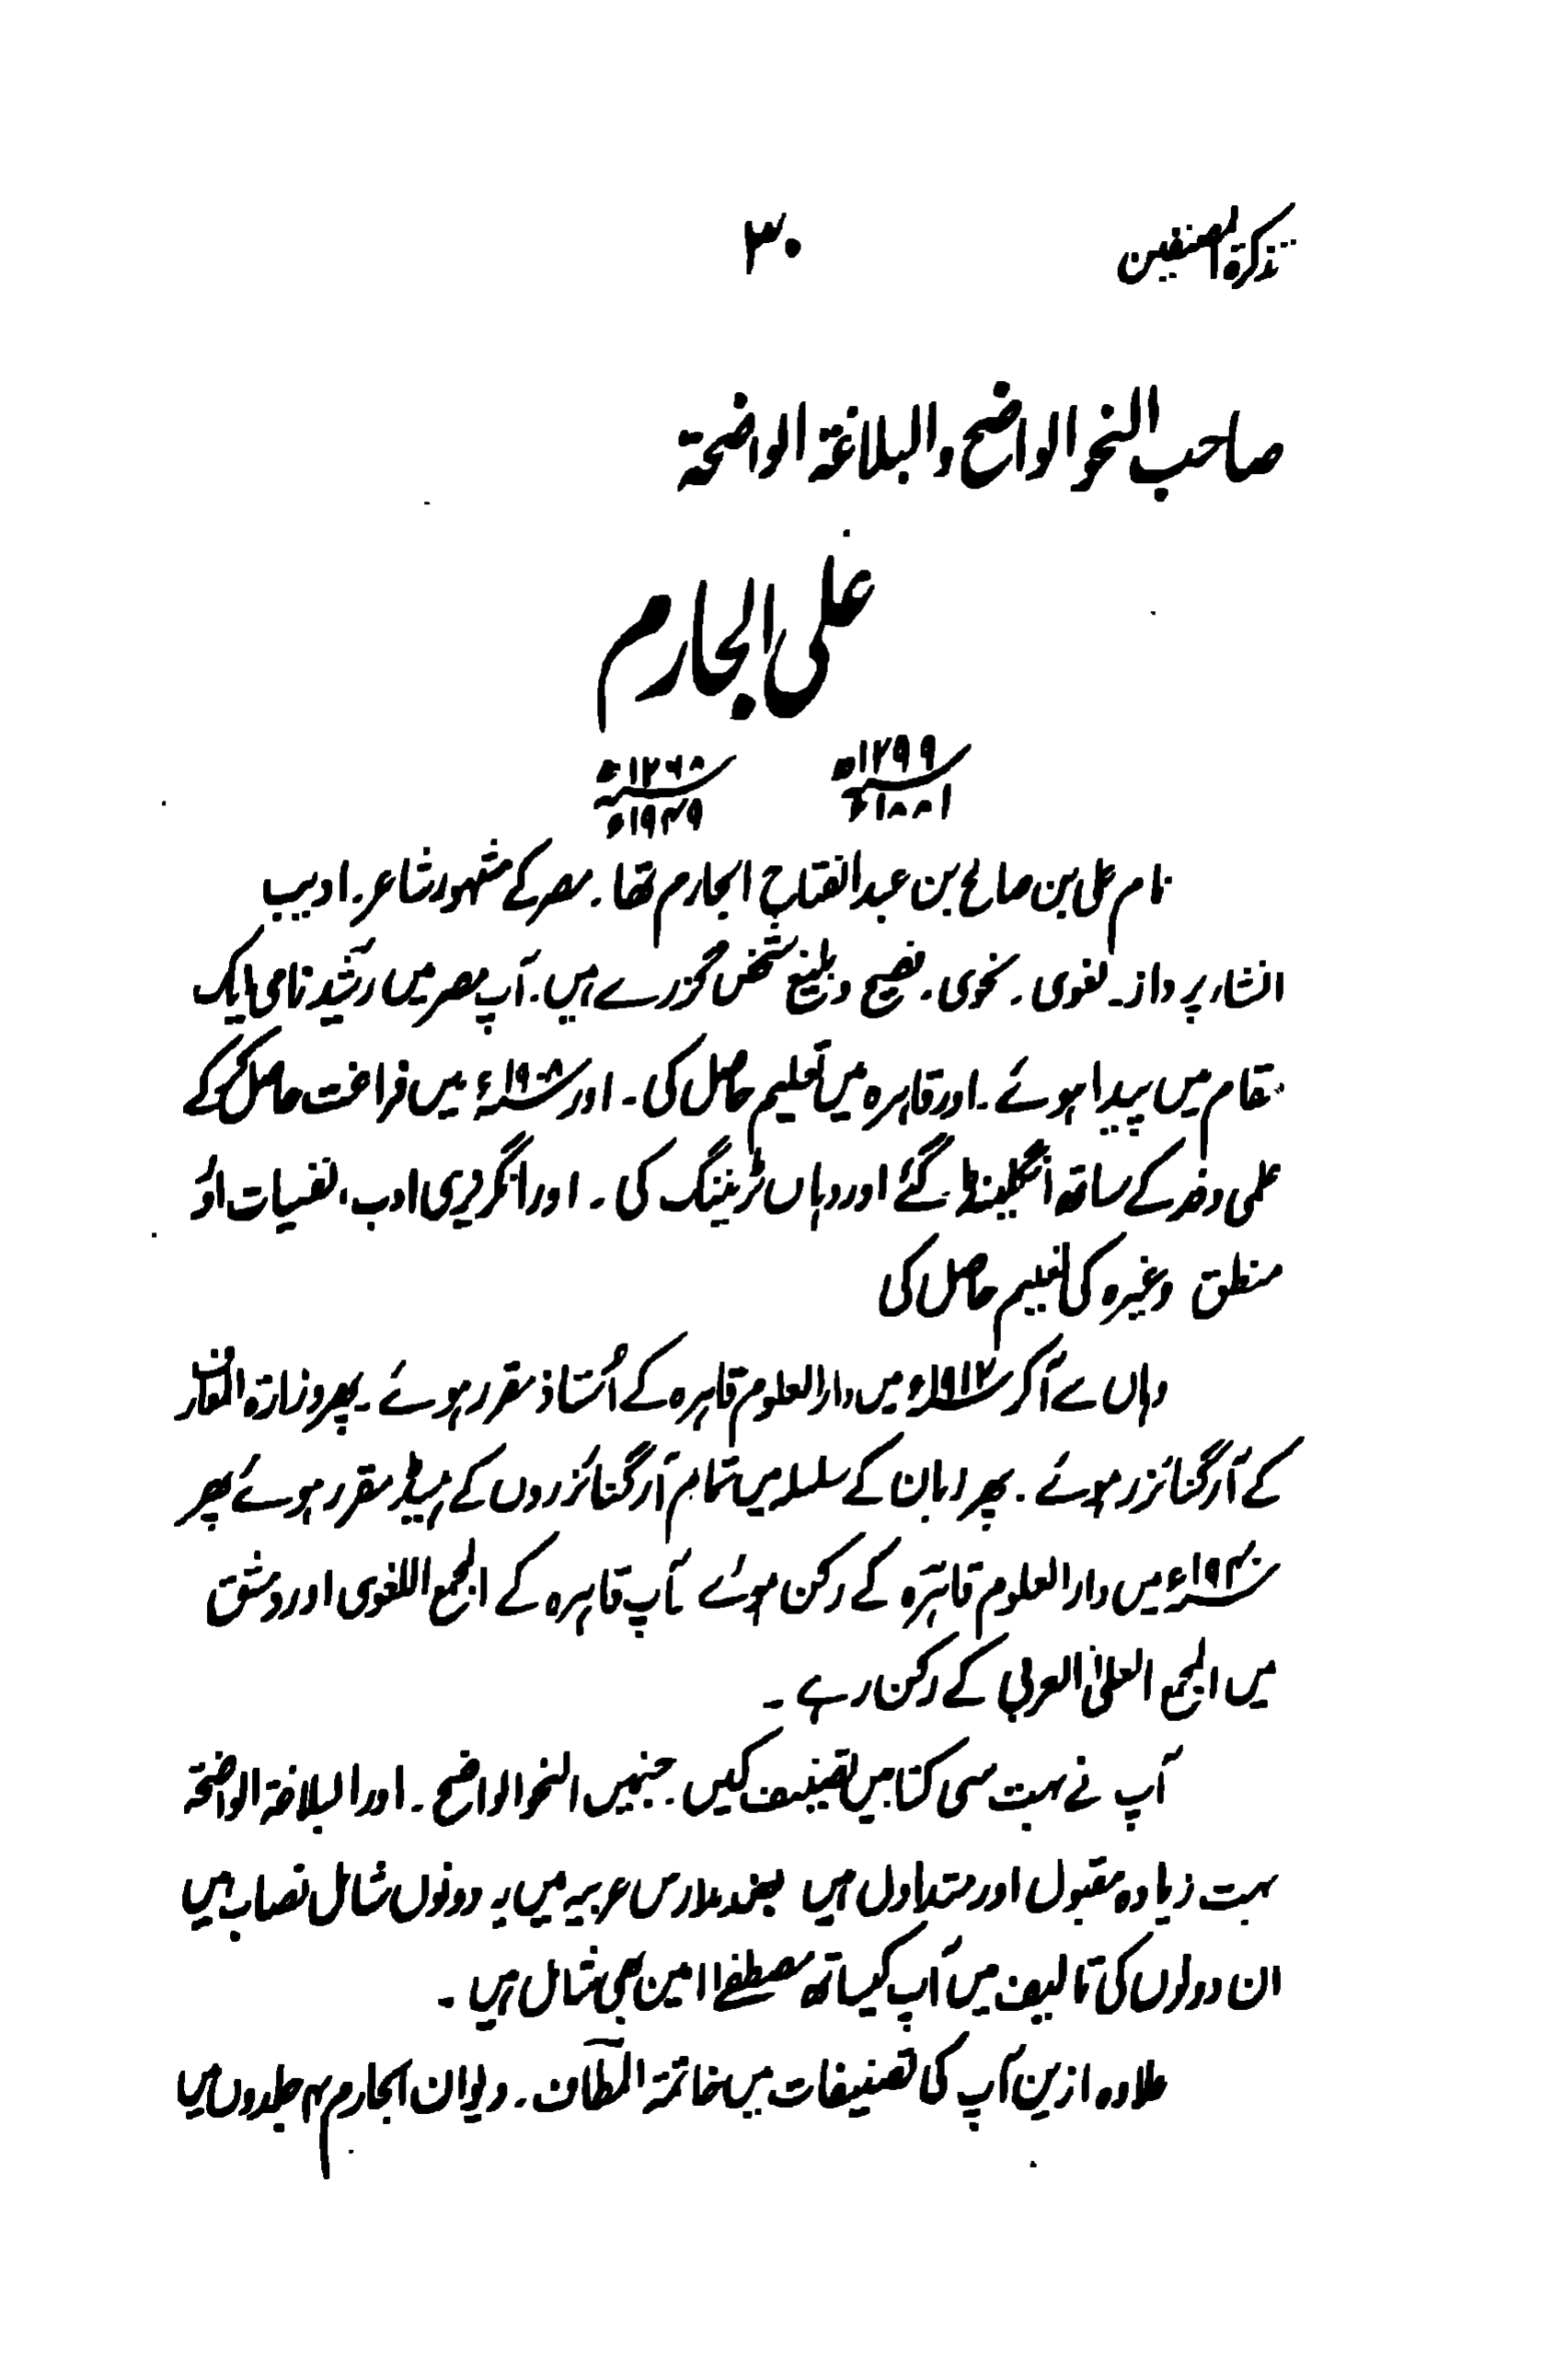 تذکرۃ المصنفین
۳۰
صاحب النحو الواضح والبلاغۃ الواضحۃ
علی الجارم
۱۲۹۹ھ ۱۳۶۸ھ
۱۸۸۱ء ۱۹۴۹ء
نام علی بن صالح بن عبدالفتاح الجارم تھا۔ مصر کے مشہور شاعر۔ ادیب
انشاء پرداز۔ لغوی۔ نحوی۔ فصیح وبلیغ شخص گزرے ہیں۔ آپ مصر میں رشید نامی ایک
مقام میں پیدا ہوئے۔ اور قاہرہ میں تعلیم حاصل کی۔ اور ۱۹۰۸ء میں فراغت حاصل کرکے
علمی وفد کے ساتھ انگلینڈ گئے اور وہاں ٹریننگ کی۔ اور انگریزی ادب، نفسیات اور
منطق وغیرہ کی تعلیم حاصل کی
وہاں سے آکر ۱۹۱۲ء میں دارالعلوم قاہرہ کے اُستاذ مقرر ہوئے۔ پھر وزارۃ
کے آرگنائزر ہوئے۔ پھر زبان کے سلسلہ میں تمام آرگنائزروں کے ہیڈ مقرر ہوئے پھر
۱۹۴۰ء میں دارالعلوم قاہرہ کے رکن ہوئے آپ قاہرہ کے المجمع اللغوی اور دمشق
میں المجمع العلمی العربی کے رکن رہے۔
آپ نے بہت سی کتابیں تصنیف کیں۔ جنہیں النحو الواضح۔ اور البلاغۃ الواضحۃ
بہت زیادہ مقبول اور متداول ہیں بعض مدارس عربیہ میں یہ دونوں شامل نصاب ہیں
ان دونوں کی تالیف میں آپ کیساتھ مصطفےٰ امین بھی شامل ہیں۔
علاوہ ازین آپ کی تصنیفات میں خاتمۃ المطاف۔ دیوان الجارم ۴ جلدوں میں